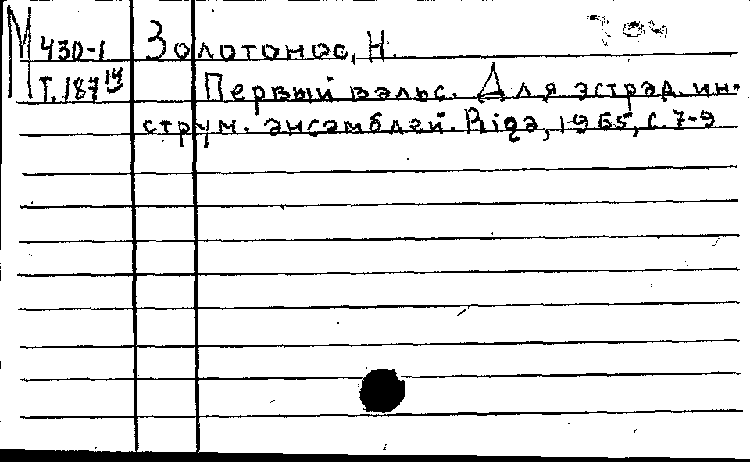 М 430-1 Золотонос, Н.
Т. 187 14 Первый вальс. Для эстрад. ин-
струм. ансамблей. Rīga, 1965, с. 7-9